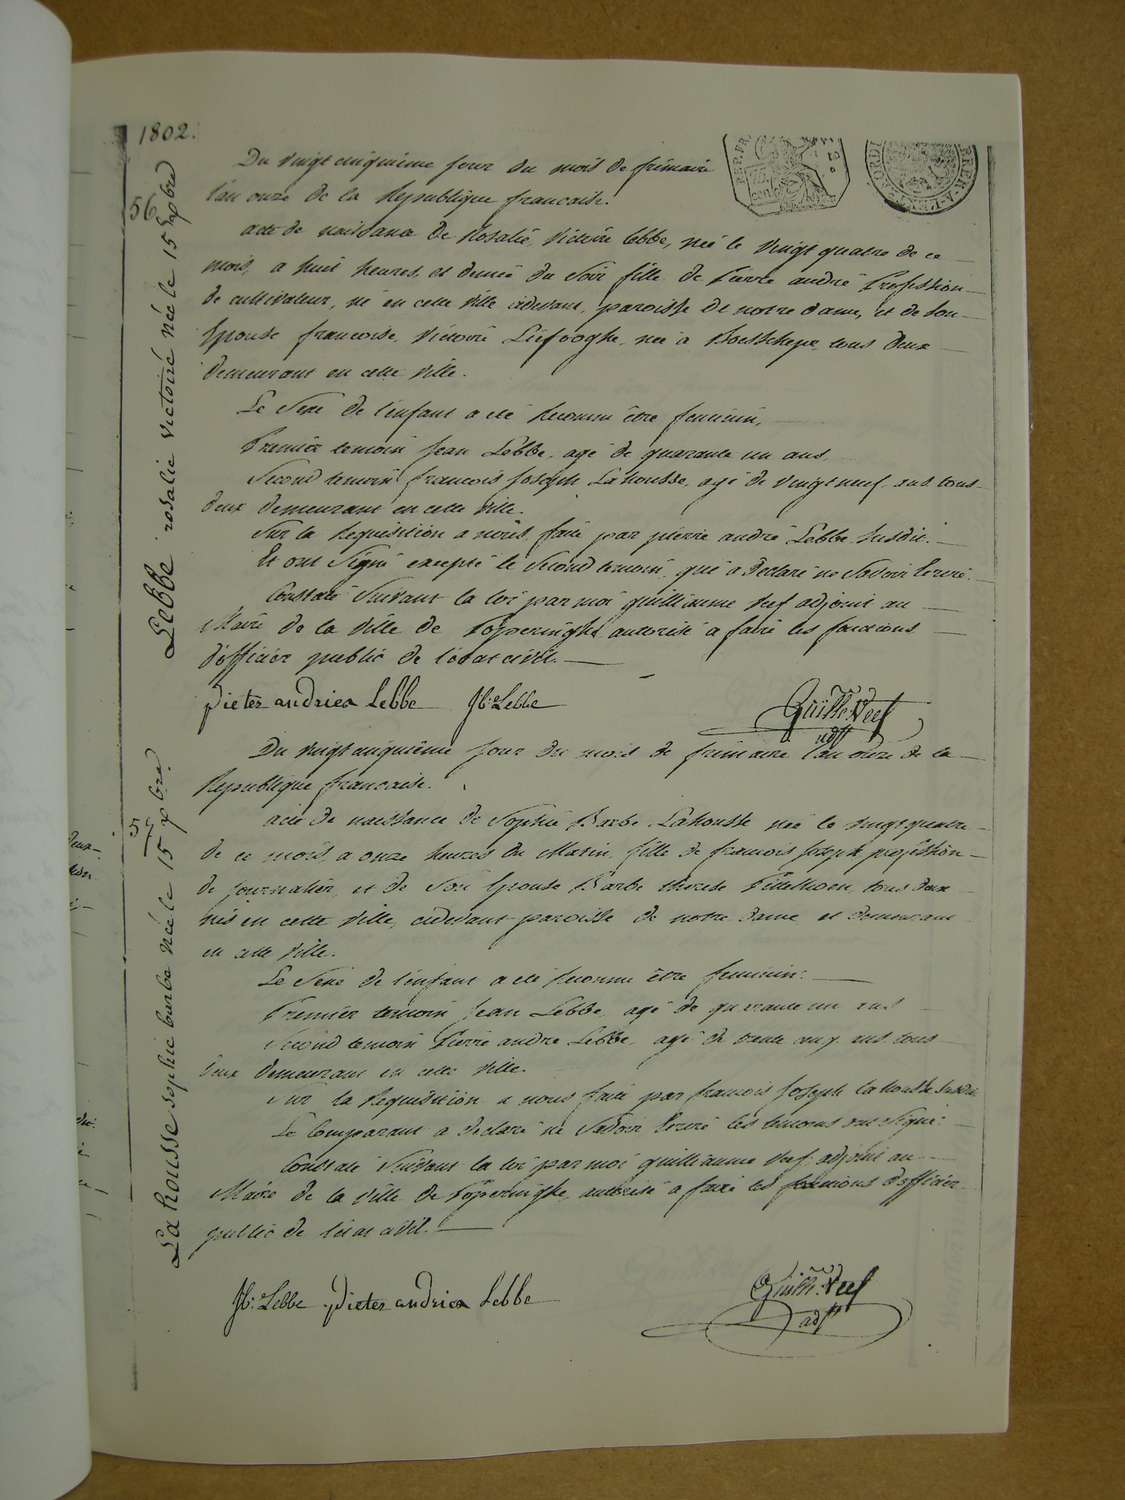 1802.
56
Lebbe rosalie victoire née le 15 xbre
Du vingt cinquième jour du mois de frimaire
l'an onze de la Republique francaise.
acte de naissance de Rosalie, Victoire Lebbe, née le vingt quatre de ce
mois, a huit heures et demie du Soir fille de Pierre andré Profession
de cultivateur, né en cette ville cidevant, paroisse de notre dame, et de Son
Epouse francoise, Victoire Liefooghe, née à Boesschepe tous deux
demeurant en cette ville.
Le Sexe de l'enfant a eté Reconnu être feminin,
Premier temoin Jean Lebbe, agé de quarante un ans,
Second temoin francois Joseph Lahousse, agé de vingt neuf ans tous
deux demeurant en cette ville.
Sur la Requisition a nous faite par pierre andré Lebbe Susdit.
Et ont Signé excepté le Second temoin qui a Declaré ne Savoir Ecrire.
Constaté Suivant la loi par moi guilliaume Veef adjoint au
Maire de la ville de Poperinghe autorisé a faire les fonctions
d'officier public de l'état civil.
Pieter andries Lebbe Jb: Lebbe
Guill: Veef
adjt
57
La housse sophie barbe née le 15 xbre.
Du vingt cinquième jour du mois de frimaire l'an onze de la
Republique francaise.
acte de naissance de Sophie Barbe Lahousse née le vingt quatre
de ce mois, a onze heures du Matin, fille de francois Joseph profession
de journalier, et de Son Epouse Barbe therese tous deux
nés en cette ville, cidevant paroisse de notre dame et demeurant
en cette ville.
Le Sexe de l'enfant a eté Reconnu être feminin.
Premier temoin Jean Lebbe, agé de quarante un ans
Second temoin Pierre andre Lebbe, agé de trente ans tous
deux demeurant en cette ville.
Sur la Requisition a nous faite par francois Joseph la housse Susdit
Le Comparant a declaré ne Savoir Ecrire les temoins ont Signé.
Constaté Suivant la loi par moi guilliaume Veef adjoint au
Maire de la ville de Poperinghe, autorisé a faire les fonctions d'officier
public de l'état civil.
Jb: Lebbe Pieter andries Lebbe
Guill: Veef
adjt